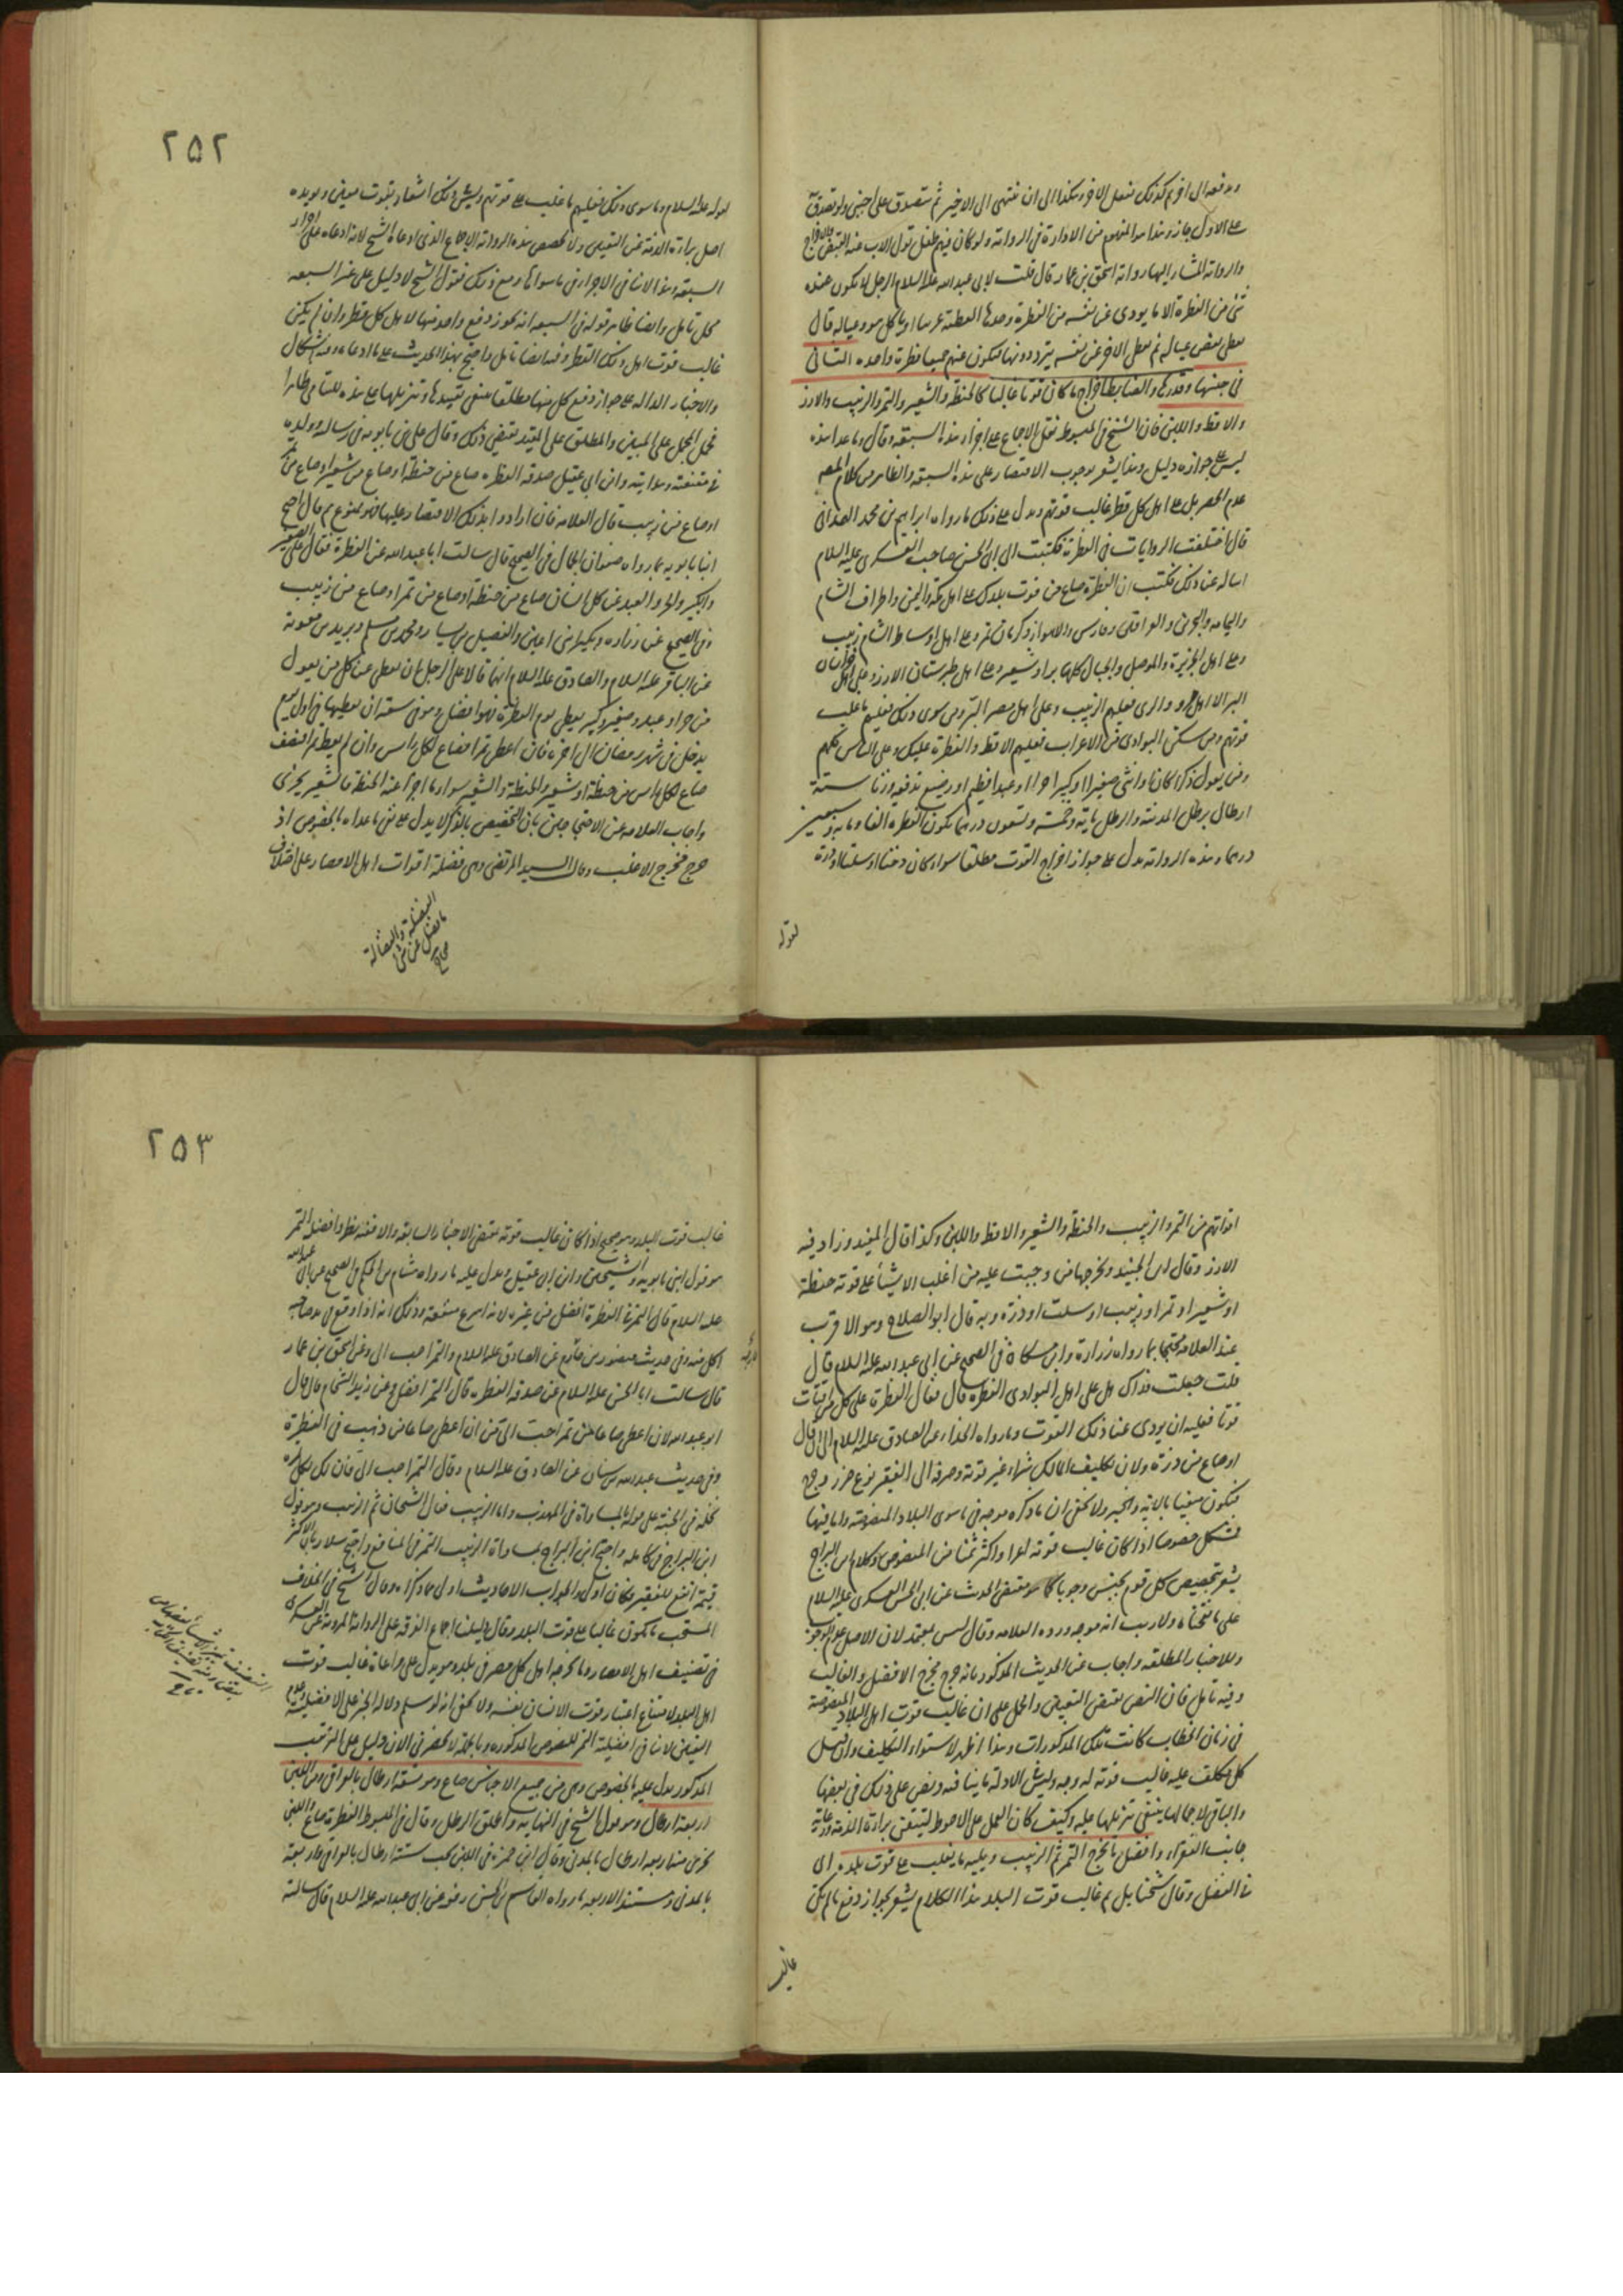 ويدفعه الى اخر ثم كذلك يفعل الاخر وهكذا الى ان ينتهى الى الاخير ثم يتصدق على اجنبى ولو تصدق
على الاول جاز وهذا هو المفهوم من الادارة فى الرواية ولو كان فيهم طفل تولى الاب عنه القبض والاخراج
والرواية المشار اليها رواية اسحق بن عمار قال قلت لابى عبدالله عليه السلام الرجل لا يكون عنده
شئ من الفطرة الا ما يودى عن نفسه من الفطرة وحدها ايعطيه غريبا او ياكل هو وعياله قال
يعطى بعض عياله ثم يعطى الاخر عن نفسه يترددونها فيكون عنهم جميعا فطرة واحدة الثانى
فى جنسها وقدرها والضابط اخراج ما كان قوتا غالبا كالحنطة والشعير والتمر والزبيب والارز
والاقط واللبن فان الشيخ فى المبسوط نقل الاجماع على اجزاء هذه السبعة وقال وما عدا هذه
ليس على جوازه دليل وهذا يشعر بوجوب الاقتصار على هذه السبعة والظاهر من كلام المصنف
عدم الحصر بل على اهل كل قطر غالب قوتهم ويدل على ذلك ما رواه ابراهيم بن محمد الهمدانى
قال اختلفت الروايات فى الفطرة فكتبت الى ابى الحسن صاحب العسكرى عليه السلام
اساله عن ذلك فكتب ان الفطرة صاع من قوت بلدك على اهل مكة واليمن واطراف الشام
واليمامه والبحرين والعراقين وفارس والاهواز وكرمان تمر وعلى اهل اوساط الشام زبيب
وعلى اهل الجزيرة والموصل والجبال كلها بر او شعير وعلى اهل طبرستان الارز وعلى اهل خراسان
البر الا اهل مرو والرى فعليهم الزبيب وعلى اهل مصر البر ومن سوى ذلك فعليهم ما غلب
قوتهم ومن سكن البوادى من الاعراب فعليهم الاقط والفطرة عليك وعلى الناس كلهم
ومن يعول ذكرا كان او انثى صغيرا او كبيرا حرا او عبدا فطيم او رضيع تدفعه وزنا ستة
ارطال برطل المدينة والرطل ماية وخمسة وتسعون درهما تكون الفطرة الفا وماية وسبعين
درهما وهذه الرواية تدل على جواز اخراج القوت مطلقا سواء كان دخنا او سلتا او ذرة
لقوله
٢٥٢
لقوله عليه السلام وما سوى ذلك فعليهم ما غلب على قوتهم وليس ذلك اشعار بثبوت معين ويويده
اصل براءة الذمة عن التعيين ولا تخصص هذه الرواية الاجماع الذى ادعاه الشيخ لانه ادعاه على اجزاء
السبعة وهذا لا ينافى الاجزاء فى ما سواها ومع ذلك فقول الشيخ لا دليل على غير السبعه
محل تامل وايضا ظاهر قوله فى السبعه انه يجوز دفع واحد منها لاهل كل قطر وان لم يكن
غالب قوت اهل ذلك القطر وفيه ايضا تامل واحتج بهذا الحديث على ما ادعاه وفيه اشكال
والاخبار الدالة على جواز دفع كل منها مطلقا ينبغى تقييدها وتنزيلها على هذه
فحمل المجمل على المبين والمطلق على المقيد يقتضى ذلك وقال على بن بابويه فى رسالته وولده
فى مقنعته وهدايته وابن ابى عقيل صدقة الفطرة صاع من حنطة او صاع من شعير او صاع من تمر
او صاع من زبيب قال العلامه فان ارادوا بذلك الاقتصار عليها فهو ممنوع ثم قال احتج
ابنا بابويه بما رواه صفوان الجمال فى الصحيح قال سالت ابا عبدالله عن الفطرة فقال على الصغير
والكبير والحر والعبد عن كل انسان صاع من حنطة او صاع من تمر او صاع من زبيب
وفى الصحيح عن زرارة وبكير ابنى اعين والفضيل بن يسار ومحمد بن مسلم وبريد بن معوية
عن الباقر عليه السلام والصادق عليه السلام انهما قالا على الرجل ان يعطى عن كل من يعول
من حر او عبد وصغير وكبير يعطى يوم الفطرة فهو افضل وهو فى سعة ان يعطيها فى اول يوم
يدخل من شهر رمضان الى اخره فان اعطى تمرا فصاع لكل راس وان لم يعط تمرا فنصف
صاع لكل راس من حنطة او شعير والحنطة والشعير سواء ما اجزأ عنه الحنطة فالشعير يجزى
واجاب العلامه عن الاحتجاجين بان التخصيص بالذكر لا يدل على نفى ما عداه بالخصوص اذ
خرج مخرج الاغلب وقال السيد المرتضى وهى فضلة اقوات اهل الامصار على اختلاف
الفضلة والفضالة
ما فضل من شئ
صحاح
اقواتهم من التمر والزبيب والحنطة والشعير والاقط واللبن وكذا قال المفيد وزاد فيه
الارز وقال ابن الجنيد ويخرجها من وجبت عليه من اغلب الاشياء على قوته حنطة
او شعير او تمر او زبيب او سلت او ذرة وبه قال ابو الصلاح وهو الاقرب
عند العلامه محتجا بما رواه زرارة وابن مسكان فى الصحيح عن ابى عبدالله عليه السلام قال
قلت جعلت فداك هل على اهل البوادى الفطرة قال فقال الفطرة على كل من اقتات
قوتا فعليه ان يودى عنا ذلك القوت وما رواه الحذاء عن الصادق عليه السلام الى ان قال
او صاع من ذرة ولان تكليف المالك شراء غير قوته وصرفه الى الفقير نوع ضرر وحرج
فيكون منفيا بالاية والخبر ولا يخفى ان ما ذكره موجه فى ما سوى البلاد المنصوصة واما فيها
فمشكل خصوصا اذا كان غالب قوته لغيرها واكثر ثمنا من المنصوص وكلام ابن البراج
يشعر بتخصيص كل قوم بجنس وجوبا كما هو مقتضى الحديث عن ابى الحسن العسكرى عليه السلام
على ما نقلناه ولا ريب انه موجه ورده العلامه وقال ليس بمعتمد لان الاصل عدم الوجوب
وللاخبار المطلقه واجاب عن الحديث المذكور بانه خرج مخرج الافضل والغالب
وفيه تامل فان النص يقتضى التعيين والحمل على ان غالب قوت اهل البلاد المنصوصة
فى زمان الخطاب كانت تلك المذكورات وهذا اظهر لاستواء التكليف وان
كل مكلف عليه غالب قوته له وجه وليس الادلة ما ينافيه ونص على ذلك فى بعضها
والباقى لاجمالها ينبغى تنزيلها عليه وكيف كان العمل على الاحوط ليتيقن براءة الذمة ورعاية
جانب الفقراء وافضل ما يخرج التمر ثم الزبيب ويليه ما يغلب على قوت بلده اى
فى الفضل وقال شيخنا بل ثم غالب قوت البلد هذا الكلام يشعر بجواز دفع ما لم يكن
غالب
٢٥٣
غالب قوت البلد وهو صحيح اذا كان غالب قوته بمقتضى الاخبار السابقه وافضلية التمر
هو قول ابنى بابويه والشيخين وابن ابى عقيل ويدل عليه ما رواه هشام بن الحكم فى الصحيح عن ابى عبدالله
عليه السلام قال التمر فى الفطرة افضل من غيره لانه اسرع منفعة وذلك انه اذا وقع فى يد صاحبه
اكل منه وفى حديث منصور بن حازم عن الصادق عليه السلام والتمر احب الى وعن اسحق بن عمار
قال سالت ابا الحسن عليه السلام عن صدقة الفطرة قال التمر افضل وعن زيد الشحام قال قال
ابو عبدالله لان اعطى صاعا من تمر احب الى من ان اعطى صاعا من ذهب فى الفطرة
وفى حديث عبدالله بن سنان عن الصادق عليه السلام وقال التمر احب الى فان لك بكل تمرة
نخلة فى الجنة على قوله بالمساواة فى المهذب واما الزبيب فقال الشيخان ثم الزبيب وهو قول
ابن البراج فى كامله واحتج ابن البراج بمساواة الزبيب التمر فى المنافع واحتج سلار بان الاكثر
قيمة انفع للفقير فكان اولى والجواب الاحاديث اولى مما ذكراه وقال الشيخ فى الخلاف
المستحب ما يكون غالبا على قوت البلد وقال دليلنا اجماع الفرقة على الرواية المروية عن العسكرى
فى تصنيف اهل الامصار وما يخرجه اهل كل مصر فى بلده وهو يدل على مراعاة غالب قوت
اهل البلد لامتناع اعتبار قوت الانسان نفسه ولا يخفى انه لو سلم دلالة الخبر على الافضلية وعدم
التعيين لا ينافى افضلية التمر للنصوص المذكوره وبالجملة لا يحضرنى الان دليل على الترتيب
المذكور يدل عليه بالخصوص وهى من جميع الاجناس صاع وهو تسعة ارطال بالعراقى ومن اللبن
اربعة ارطال وهو قول الشيخ فى النهايه واطلق الرطل وقال فى المبسوط الفطرة صاع واللبن
يجزى منه اربعه ارطال بالمدنى وقال ابن حمزه فى اللبن يجب ستة ارطال بالعراقى واربعة
بالمدنى ومستند الاربعه ما رواه القاسم بن الحسن رفعه عن ابى عبدالله عليه السلام قال سالته